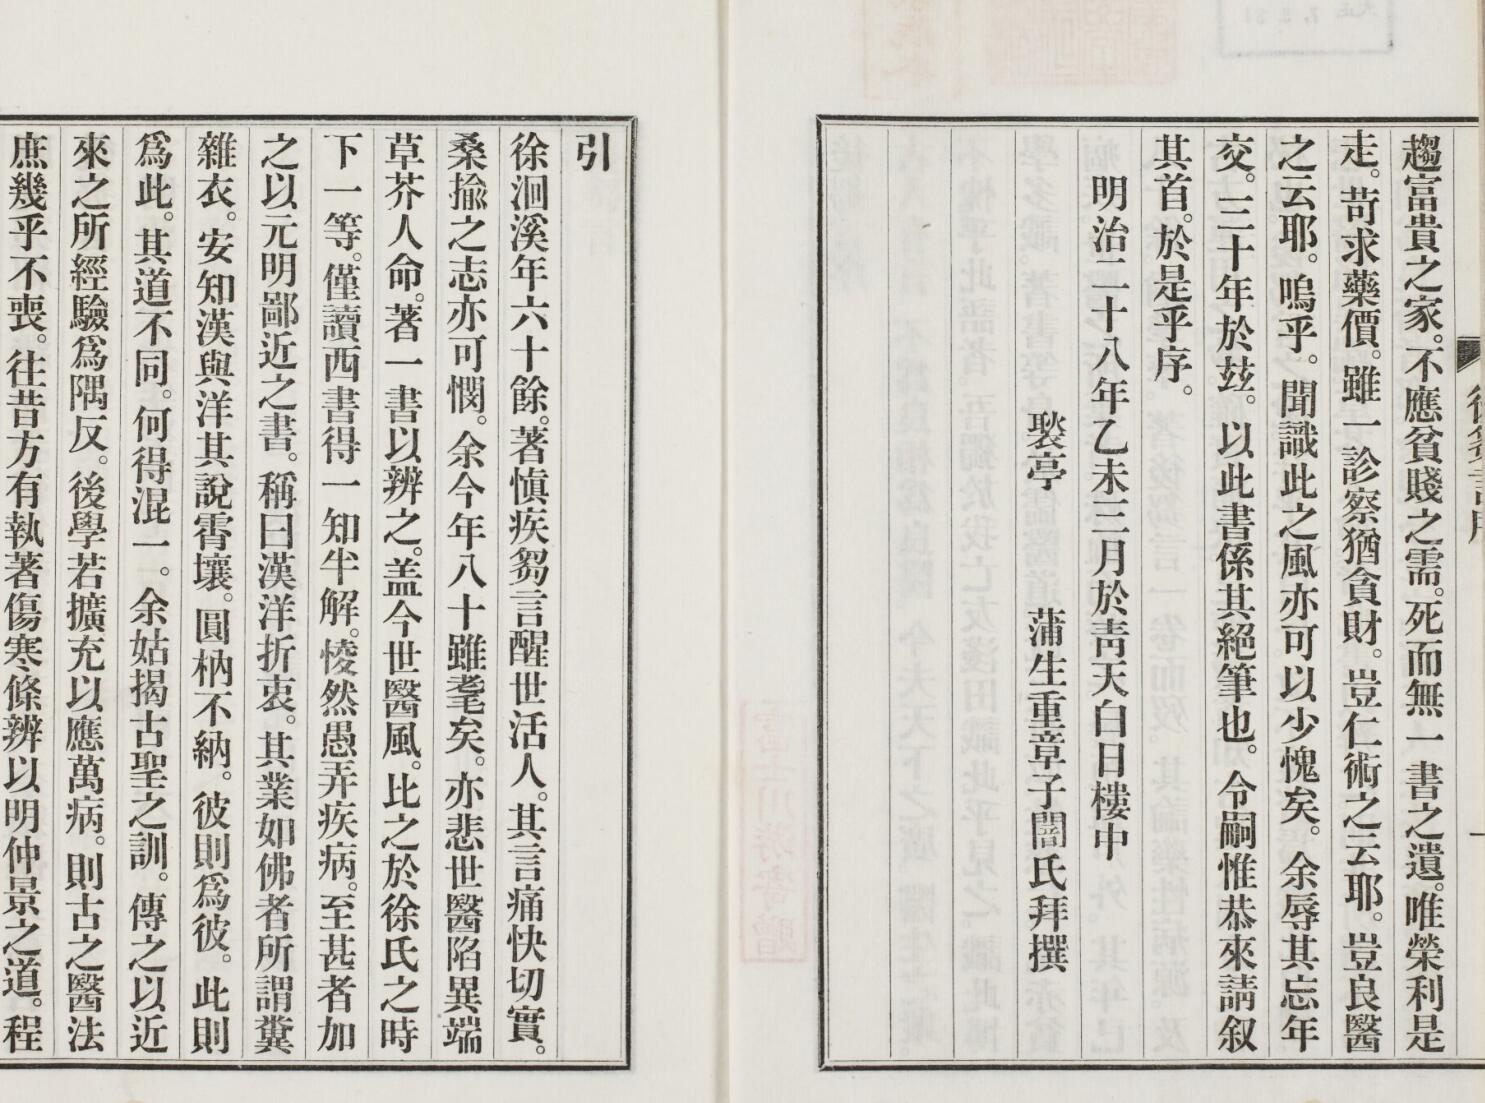 趨富貴之家。不應貧賤之需。死而無一書之遺。唯榮利是
走。苛求藥價。雖一診察猶貪財。豈仁術之云耶。豈良醫
之云耶。嗚乎。聞識此之風亦可以少愧矣。余辱其忘年
交。三十年於玆。以此書係其絕筆也。令嗣惟恭來請叙
其首。於是乎序。
明治二十八年乙未三月於靑天白日樓中
褧亭 蒲生重章子闇氏拜撰
引
徐洄溪年六十餘。著愼疾芻言醒世活人。其言痛快切實。
桑揄之志亦可憫。余今年八十雖耄矣。亦悲世醫陷異端
草芥人命。著一書以辨之。盖今世醫風。比之於徐氏之時
下一等。僅讀西書得一知半解。悛然愚弄疾病。至甚者加
之以元明鄙近之書。稱曰漢洋折衷。其業如佛者所謂糞
雜衣。安知漢與洋其說霄壤。圓枘不納。彼則爲彼。此則
爲此。其道不同。何得混一。余姑揭古聖之訓。傳之以近
來之所經驗爲隅反。後學若擴充以應萬病。則古之醫法
庶幾乎不喪。往昔方有執著傷寒條辨以明仲景之道。程